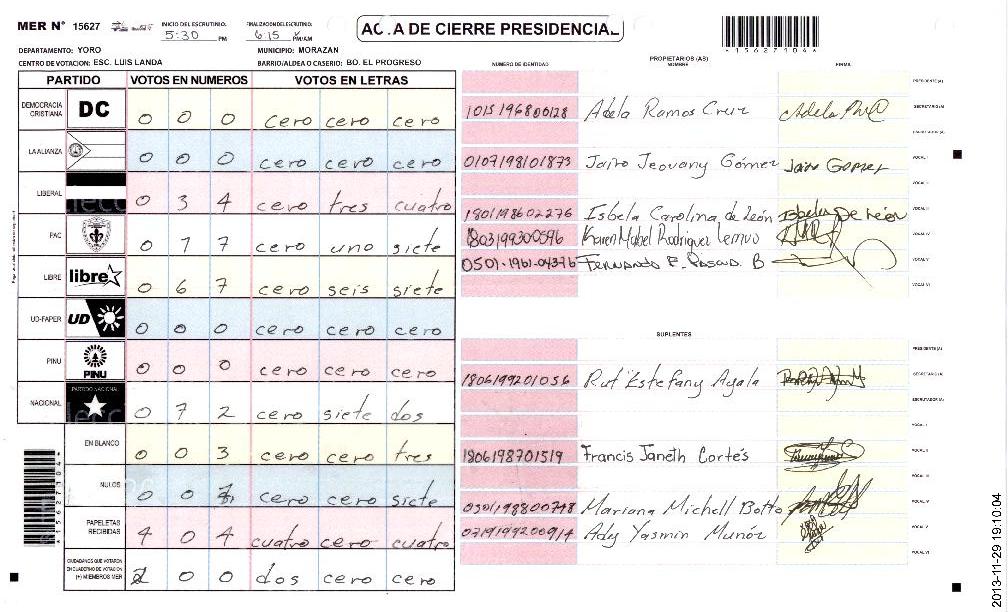 MER N° 15627
INICIO DEL ESCRUTINIO: 5:30 PM
FINALIZACION DEL ESCRUTINIO: 6:15 PM/AM
ACTA DE CIERRE PRESIDENCIAL
*1562710 4*
DEPARTAMENTO: YORO
MUNICIPIO: MORAZAN
CENTRO DE VOTACION: ESC. LUIS LANDA
BARRIO/ALDEA O CASERIO: BO. EL PROGRESO
PARTIDO VOTOS EN NUMEROS VOTOS EN LETRAS
DEMOCRACIA CRISTIANA DC 0 0 0 cero cero cero
LA ALIANZA 0 0 0 cero cero cero
LIBERAL 0 3 4 cero tres cuatro
PAC 0 1 7 cero uno siete
LIBRE libre 0 6 7 cero seis siete
UD-FAPER UD 0 0 0 cero cero cero
PINU PINU 0 0 0 cero cero cero
NACIONAL PARTIDO NACIONAL 0 7 2 cero siete dos
EN BLANCO 0 0 3 cero cero tres
NULOS 0 0 7 cero cero siete
PAPELETAS RECIBIDAS 4 0 4 cuatro cero cuatro
CIUDADANOS QUE VOTARON EN CUADERNO DE VOTACION (+) MIEMBROS MER 2 0 0 dos cero cero
PROPIETARIOS (AS)
NUMERO DE IDENTIDAD NOMBRE FIRMA
PRESIDENTE (A)
1015196800128 Adela Ramos Cruz SECRETARIO (A)
ESCRUTADOR (A)
0107198101873 Jairo Jeovany Gómez Jairo Gomez VOCAL I
VOCAL II
1801198602276 Isbela Carolina de León VOCAL III
1803199300596 Karen Mabel Rodriguez VOCAL IV
0501-1961-04376 FERNANDO F. B VOCAL V
VOCAL VI
SUPLENTES
PRESIDENTE (A)
1806199201056 Rut Estefany Ayala SECRETARIO (A)
ESCRUTADOR (A)
VOCAL I
1806198701519 Francis Janeth Cortés VOCAL II
VOCAL III
0501198800748 Mariana Michell Botto VOCAL IV
0719199200914 Ady Yasmin Munóz VOCAL V
VOCAL VI
2013-11-29 19:10:04